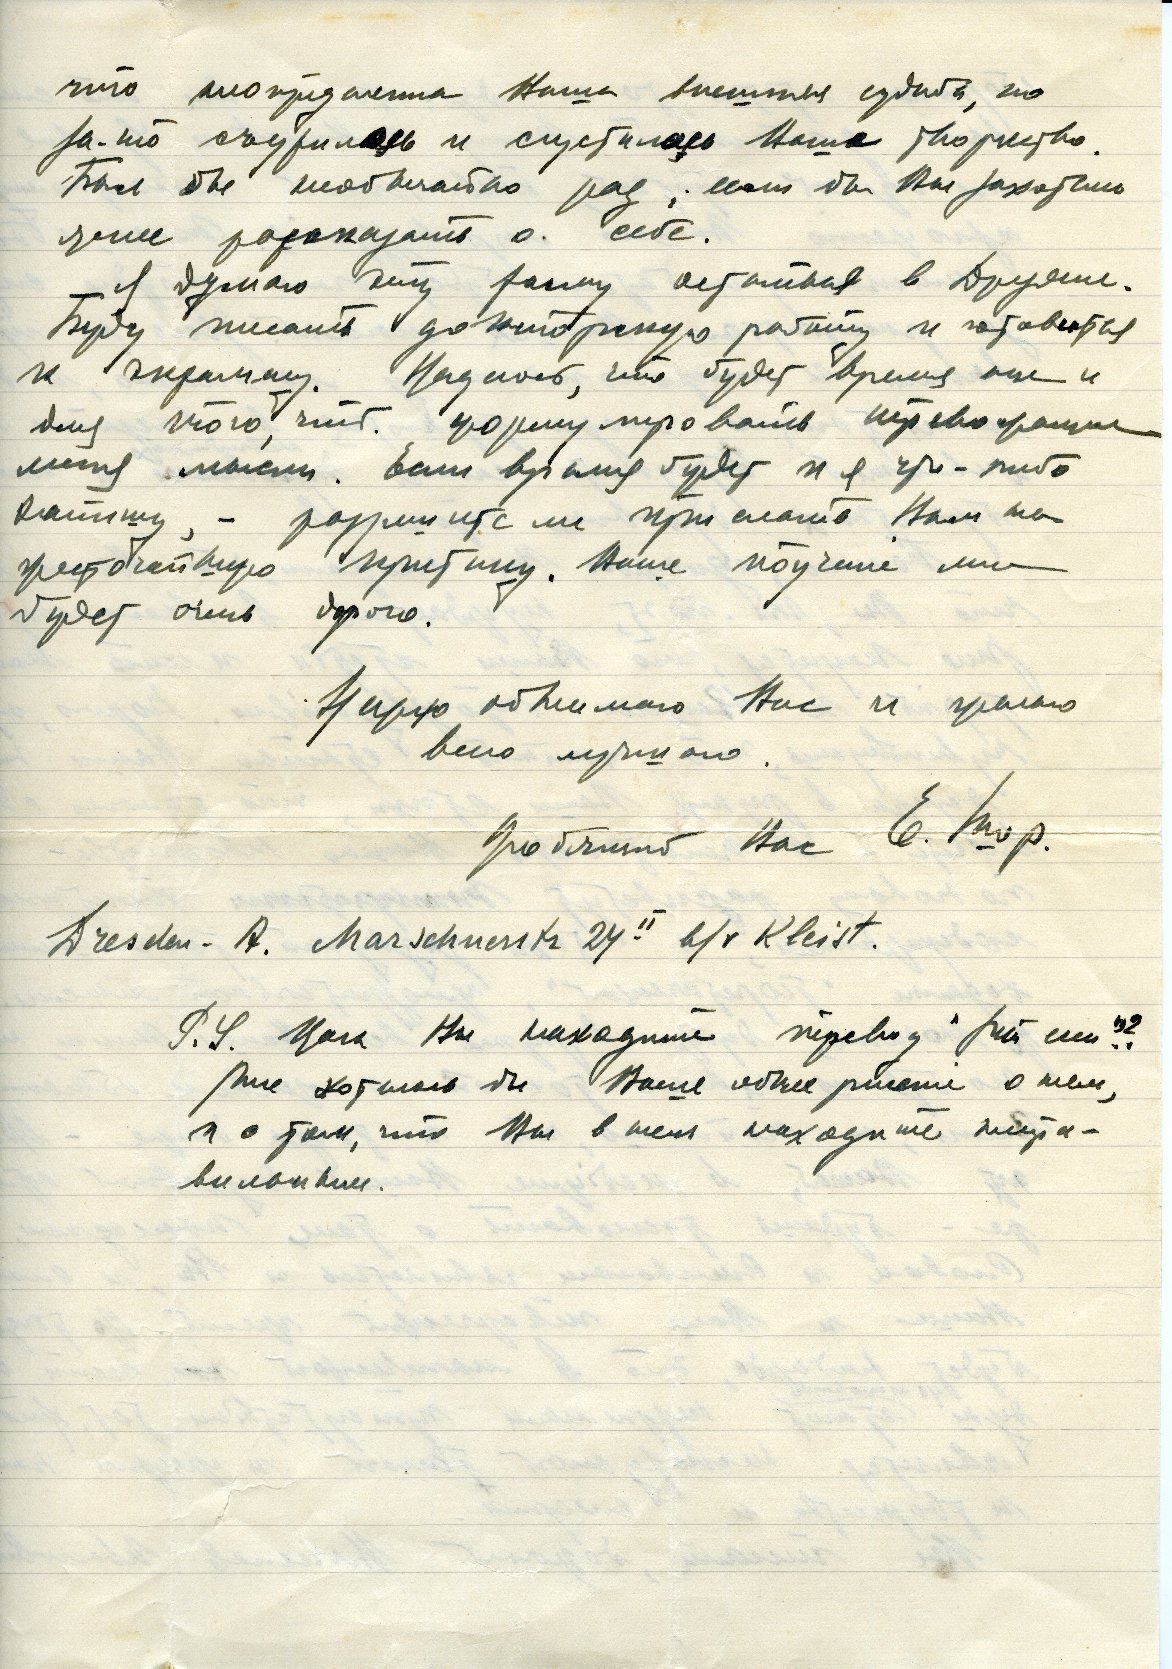 что неопределенна Ваша внешняя судьба, но
за-то съузилось и сгустилось Ваше творчество.
Был бы необычайно рад, если бы Вы захотели
мне разсказать о себе.
Я думаю эту зиму остаться в Дрездене.
Буду писать докторскую работу и готовиться
к экзамену. Надеюсь, что будет время еще и
для того, чтоб. формулировать
меня мысли. Если время будет и я что-либо
напишу, – разрешите ли прислать Вам на
жесточайшую критику. Ваше поучение мне
будет очень дорого.
Нежно обнимаю Вас и желаю
всего лучшего.
Любящий Вас Е. Шор.
Dresden-A. Marschnerstr 24 II b/v Kleist.
P.S. Как Вы находите перевод
Мне хотелось бы Ваше общее о нем,
и о том, что Вы в нем находите непра-
вильным.